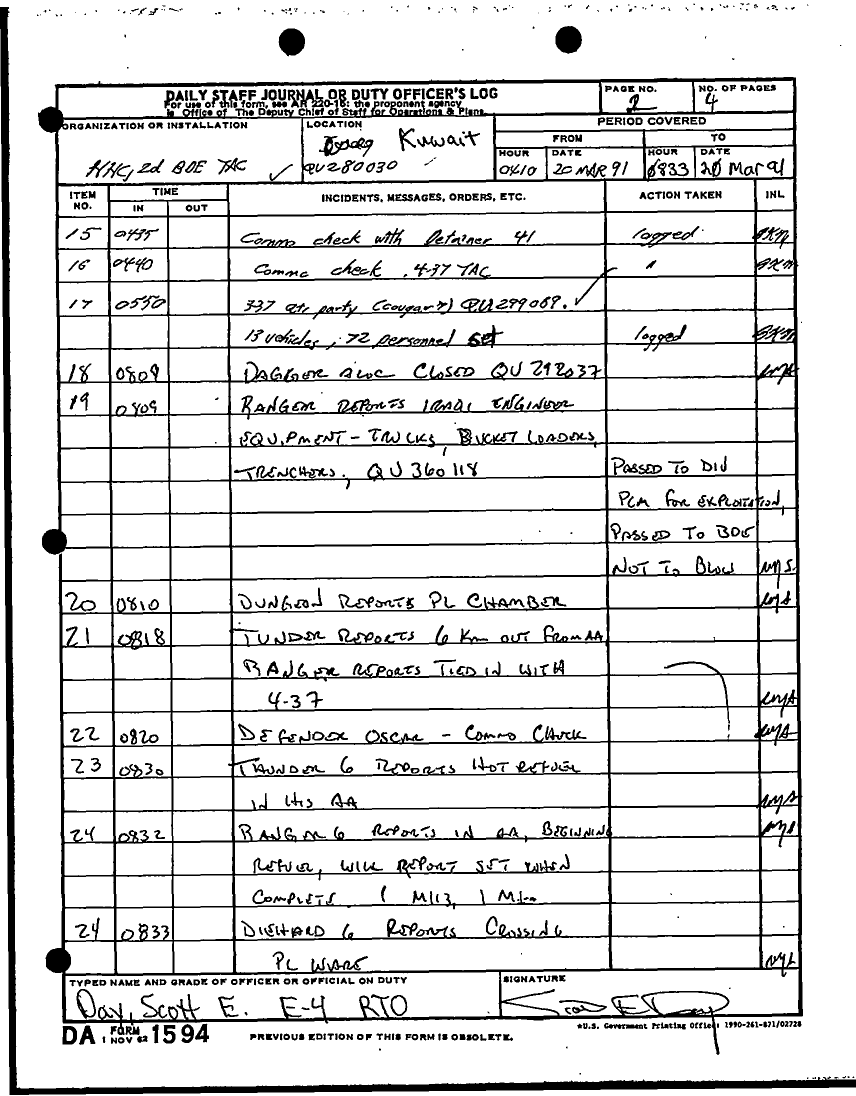 DAILY STAFF JOURNAL OR DUTY OFFICER'S LOG
For use of this form, see AR 220-15; the proponent agency
is Office of The Deputy Chief of Staff for Operations & Plans.
PAGE NO.
2
NO. OF PAGES
4
ORGANIZATION OR INSTALLATION
HHC, 2d BDE TAC
LOCATION
Kuwait
QU280030
PERIOD COVERED
FROM
TO
HOUR
DATE
HOUR
DATE
0410
20 MAR 91
0833
20 Mar 91
ITEM NO.
TIME
IN
OUT
INCIDENTS, MESSAGES, ORDERS, ETC.
ACTION TAKEN
INL
15 0435 Commo check with Detainer 41 logged
16 0440 Commo check 4-37 TAC "
17 0550 337 qtr party (cougar 7) QU299069.
13 vehicles, 72 personnel set logged
18 0809 DAGGER ALOC CLOSED QU 292037
19 0809 RANGER REPORTS IRAQI ENGINEER
EQUIPMENT - TRUCKS, BUCKET LOADERS,
TRENCHERS, QU 360118 PASSED TO DIV
FOR EXPLOITATION,
PASSED TO BDE
NOT TO BLOW
20 0810 DUNGEON REPORTS PL CHAMBER
21 0818 TUNDER REPORTS 6 Km OUT FROM AA
RANGER REPORTS TIED IN WITH
4-37
22 0820 DEFENDER OSCAR - COMMO CHECK
23 0830 THUNDER 6 REPORTS HOT REFUEL
IN HIS AA
24 0832 RANGER 6 REPORTS IN AA, BEGINNING
REFUEL, WILL REPORT SET WHEN
COMPLETE 1 M113, 1
24 0833 DIEHARD 6 REPORTS CROSSING
PL WARE
TYPED NAME AND GRADE OF OFFICER OR OFFICIAL ON DUTY
Day, Scott E. E-4 RTO
SIGNATURE
Scott E Day
DA FORM 1 NOV 62 1594
PREVIOUS EDITION OF THIS FORM IS OBSOLETE.
*U.S. Government Printing Office: 1990-261-871/02728